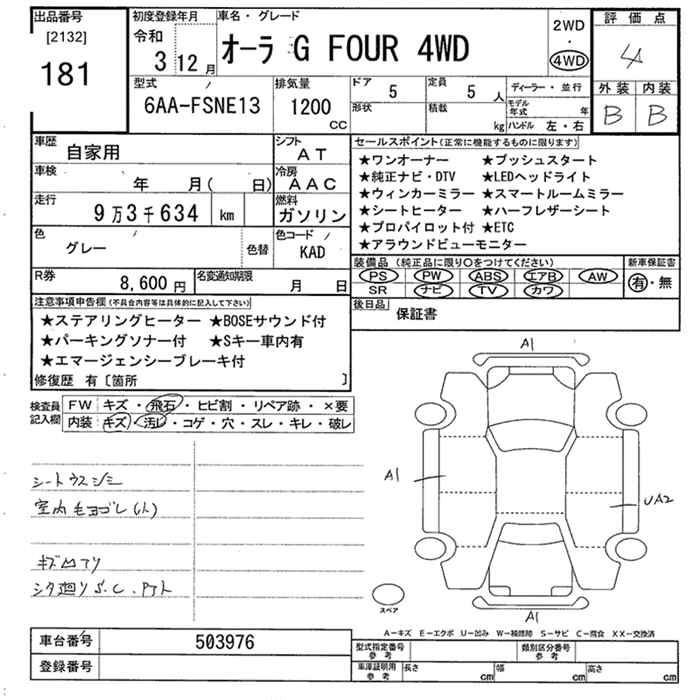 出品番号
[2132]
181
初度登録年月
令和
3 12月
車名・グレード
オーラ G FOUR 4WD
2WD
・
4WD
評価点
4
外装 内装
B B
型式
6AA-FSNE13
排気量
1200
CC
ドア 5
定員 5 人
形状
積載 kg
ディーラー・並行
モデル年式 年
ハンドル 左・右
車歴
自家用
シフト
AT
車検
年 月( 日)
冷房
AAC
走行
9万3千634 km
燃料
ガソリン
色
グレー
色替
色コード
KAD
R券
8,600円
名変通知期限
月 日
セールスポイント(正常に機能するものに限ります)
★ワンオーナー ★プッシュスタート
★純正ナビ・DTV ★LEDヘッドライト
★ウィンカーミラー ★スマートルームミラー
★シートヒーター ★ハーフレザーシート
★プロパイロット付 ★ETC
★アラウンドビューモニター
装備品(純正品に限り○をつけてください)
PS PW ABS エアB AW
SR ナビ TV カワ
新車保証書
有・無
後日品
保証書
注意事項申告欄(不具合内容等は具体的に記入して下さい)
★ステアリングヒーター ★BOSEサウンド付
★パーキングソナー付 ★Sキー車内有
★エマージェンシーブレーキ付
修復歴 有〔箇所 〕
検査員記入欄
FW キズ・飛石・ヒビ割・リペア跡・×要
内装 キズ・汚レ・コゲ・穴・スレ・キレ・破レ
シートウスシミ
室内モヨゴレ(小)
キズ凹アリ
シタ廻りS.C.
A1
A1
UA2
A1
スペア
A-キズ E-エクボ U-凹み W-補修跡 S-サビ C-腐食 XX-交換済
車台番号 503976
登録番号
型式指定番号
参考
類別区分番号
参考
車庫証明用
参考
長さ cm 幅 cm 高さ cm